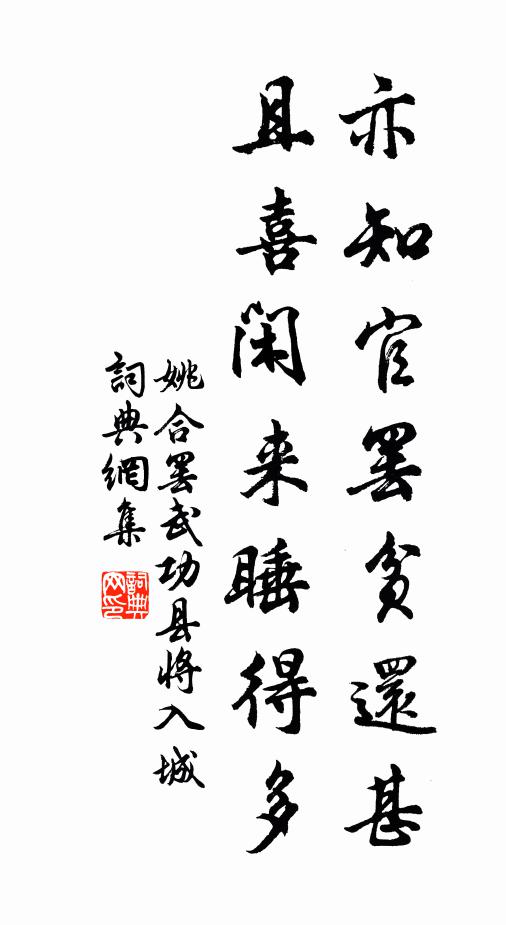 亦知官罢贫還甚
且喜闲来睡得多
姚合罢武功县将入城
詞典網集
詞典网印